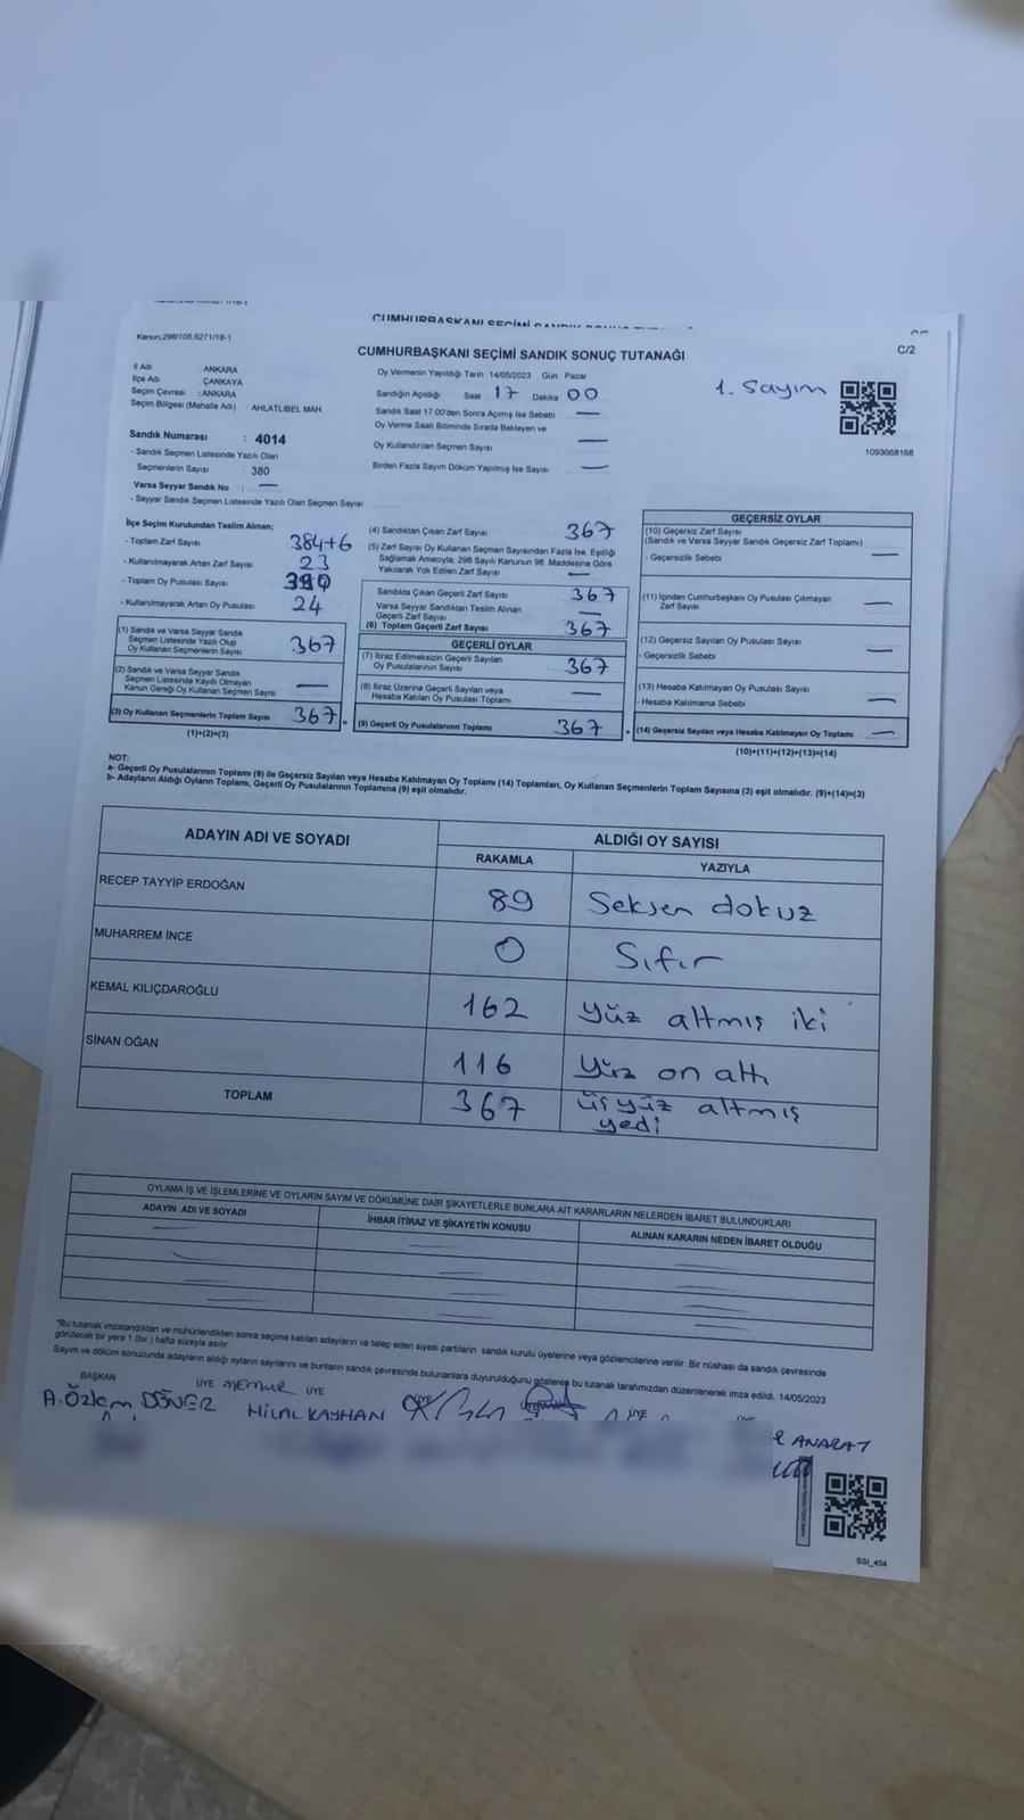 CUMHURBAŞKANI SEÇİMİ
C/2
CUMHURBAŞKANI SEÇİMİ SANDIK SONUÇ TUTANAĞI
İl Adı : ANKARA
İlçe Adı : ÇANKAYA
Seçim Çevresi : ANKARA
Seçim Bölgesi (Mahalle Adı) : AHLATLIBEL MAH.
Sandık Numarası : 4014
- Sandık Seçmen Listesinde Yazılı Olan
Seçmenlerin Sayısı 380
Varsa Seyyar Sandık No : —
- Seyyar Sandık Seçmen Listesinde Yazılı Olan Seçmen Sayısı
Oy Vermenin Yapıldığı Tarih 14/05/2023 Gün Pazar
Sandığın Açıldığı Saat 17 Dakika 00
Sandık Saat 17.00'den Sonra Açılmış İse Sebebi —
Oy Verme Saati Bitiminde Sırada Bekleyen ve
Oy Kullandırılan Seçmen Sayısı —
Birden Fazla Sayım Döküm Yapılmış İse Sayısı —
1. Sayım
1093068168
İlçe Seçim Kurulundan Teslim Alınan;
- Toplam Zarf Sayısı 384+6
- Kullanılmayarak Artan Zarf Sayısı 23
- Toplam Oy Pusulası Sayısı
- Kullanılmayarak Artan Oy Pusulası 24
(1) Sandık ve Varsa Seyyar Sandık
Seçmen Listesinde Yazılı Olup
Oy Kullanan Seçmenlerin Sayısı 367
(2) Sandık ve Varsa Seyyar Sandık
Seçmen Listesinde Kayıtlı Olmayan
Kanun Gereği Oy Kullanan Seçmen Sayısı —
(3) Oy Kullanan Seçmenlerin Toplam Sayısı 367
(1)+(2)=(3)
(4) Sandıktan Çıkan Zarf Sayısı 367
(5) Zarf Sayısı Oy Kullanan Seçmen Sayısından Fazla İse, Eşitliği
Sağlamak Amacıyla, 298 Sayılı Kanunun 98. Maddesine Göre
Yakılarak Yok Edilen Zarf Sayısı —
Sandıkta Çıkan Geçerli Zarf Sayısı 367
Varsa Seyyar Sandıktan Teslim Alınan
Geçerli Zarf Sayısı —
(6) Toplam Geçerli Zarf Sayısı 367
GEÇERLİ OYLAR
(7) İtiraz Edilmeksizin Geçerli Sayılan
Oy Pusulalarının Sayısı 367
(8) İtiraz Üzerine Geçerli Sayılan veya
Hesaba Katılan Oy Pusulası Toplamı —
(9) Geçerli Oy Pusulalarının Toplamı 367
GEÇERSİZ OYLAR
(10) Geçersiz Zarf Sayısı
(Sandık ve Varsa Seyyar Sandık Geçersiz Zarf Toplamı)
- Geçersizlik Sebebi —
(11) İçinden Cumhurbaşkanı Oy Pusulası Çıkmayan
Zarf Sayısı —
(12) Geçersiz Sayılan Oy Pusulası Sayısı
- Geçersizlik Sebebi —
(13) Hesaba Katılmayan Oy Pusulası Sayısı
- Hesaba Katılmama Sebebi —
(14) Geçersiz Sayılan veya Hesaba Katılmayan Oy Toplamı —
(10)+(11)+(12)+(13)=(14)
NOT:
a- Geçerli Oy Pusulalarının Toplamı (9) ile Geçersiz Sayılan veya Hesaba Katılmayan Oy Toplamı (14) Toplamları, Oy Kullanan Seçmenlerin Toplam Sayısına (3) eşit olmalıdır. (9)+(14)=(3)
b- Adayların Aldığı Oyların Toplamı, Geçerli Oy Pusulalarının Toplamına (9) eşit olmalıdır.
ADAYIN ADI VE SOYADI ALDIĞI OY SAYISI
RAKAMLA YAZIYLA
RECEP TAYYİP ERDOĞAN 89 Seksen dokuz
MUHARREM İNCE 0 Sıfır
KEMAL KILIÇDAROĞLU 162 Yüz altmış iki
SİNAN OĞAN 116 Yüz on altı
TOPLAM 367 üçyüz altmış
yedi
OYLAMA İŞ VE İŞLEMLERİNE VE OYLARIN SAYIM VE DÖKÜMÜNE DAİR ŞİKAYETLERLE BUNLARA AİT KARARLARIN NELERDEN İBARET BULUNDUKLARI
ADAYIN ADI VE SOYADI İHBAR İTİRAZ VE ŞİKAYETİN KONUSU ALINAN KARARIN NEDEN İBARET OLDUĞU
*Bu tutanak imzalandıktan ve mühürlendikten sonra seçime katılan adayların ve talep eden siyasi partilerin sandık kurulu üyelerine veya gözlemcilerine verilir. Bir nüshası da sandık çevresinde
görülecek bir yere 1 (bir) hafta süreyle asılır.
Sayım ve döküm sonucunda adayların aldığı oyların sayılarını ve bunların sandık çevresinde bulunanlara duyurulduğunu gösteren bu tutanak tarafımızdan düzenlenerek imza edildi. 14/05/2023
BAŞKAN ÜYE memur ÜYE
A. Özlem DÖNER HİLAL KAYHAN
ANARAT